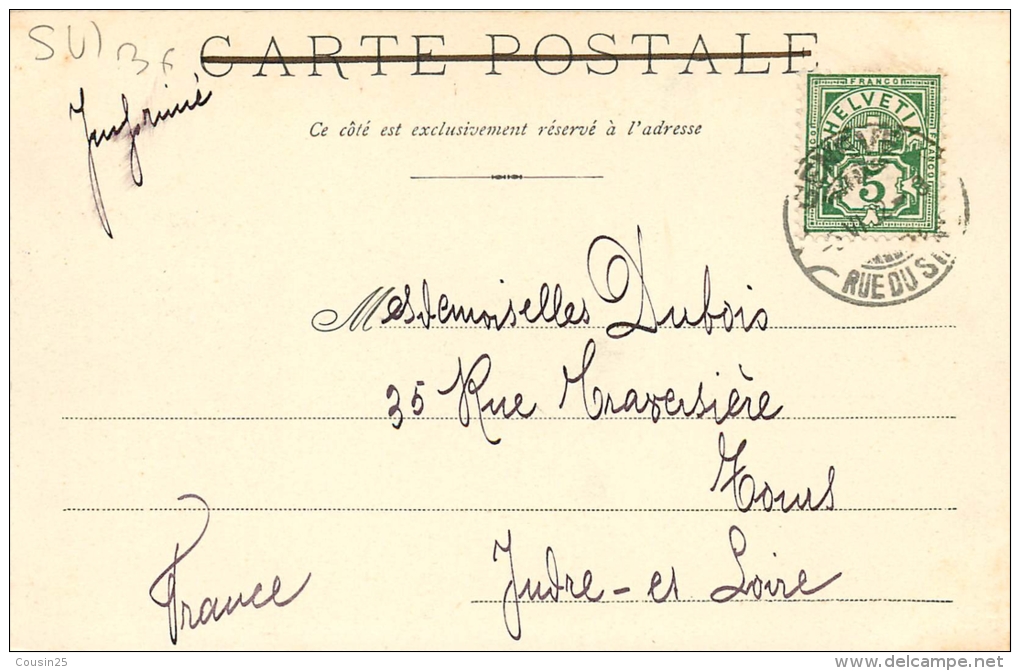 SUI
CARTE POSTALE
Imprimé
Ce côté est exclusivement réservé à l'adresse
FRANCO
HELVETIA
FRANCO
5
RUE DU
Mesdemoiselles Dubois
35 Rue Traversière
Tours
Indre-et Loire
France
Cousin25
www.delcampe.net